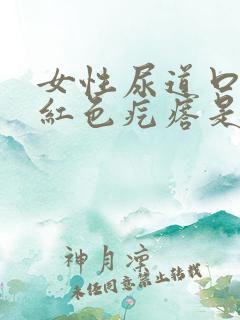 女性尿道口
紅色疙瘩是
神月凉
未经同意禁止转载